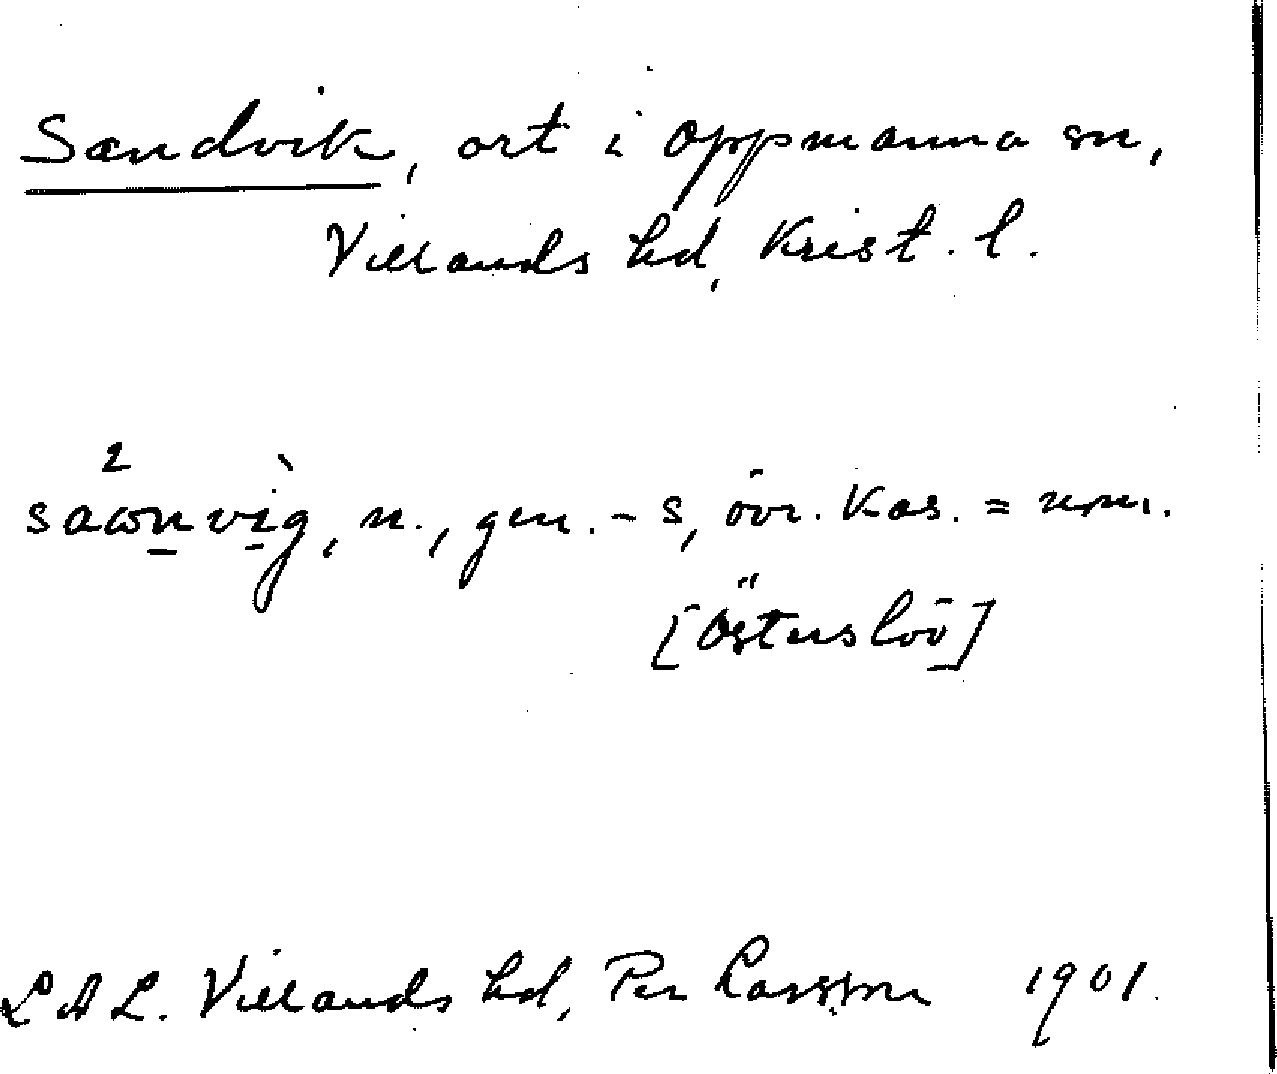 Sandvik, ort i Oppmanna sn,
Villands hd, Krist. l.
n., gen. - s, övr. kas. = nom.
[Österslöv]
L A L. Villands hd, Per Larsson 1901.